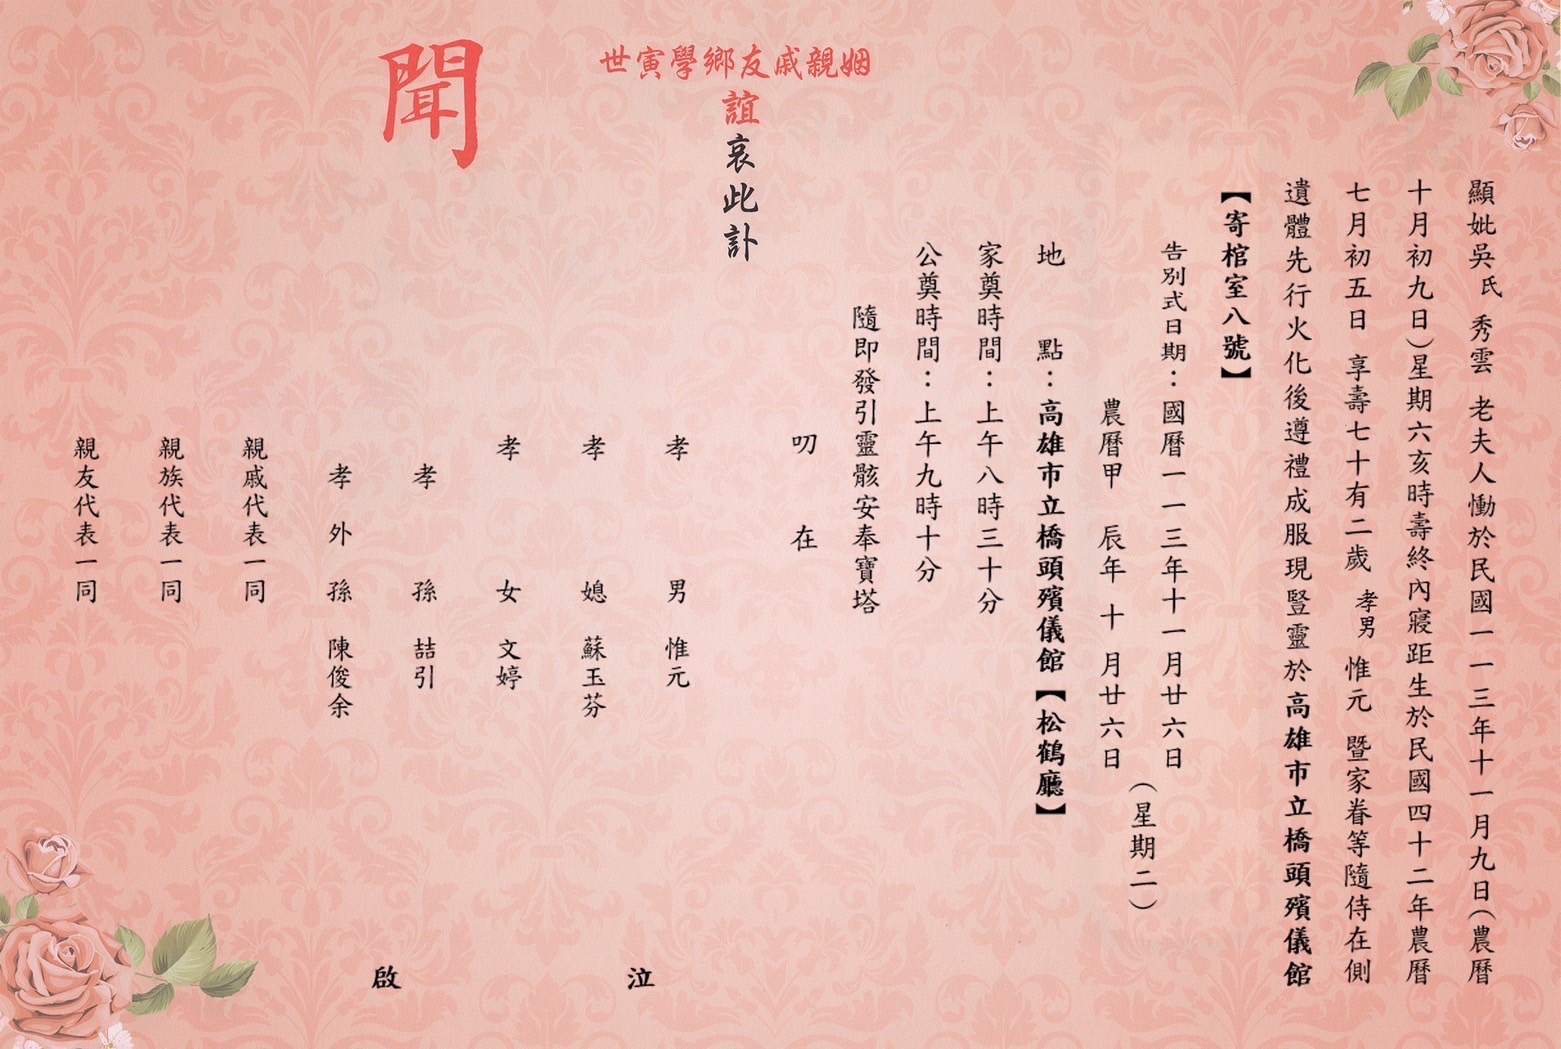 顯妣吳氏 秀雲 老夫人慟於民國一一三年十一月九日(農曆
十月初九日)星期六亥時壽終內寢距生於民國四十二年農曆
七月初五日 享壽七十有二歲 孝男 惟元 暨家眷等隨侍在側
遺體先行火化後遵禮成服現豎靈於高雄市立橋頭殯儀館
【寄棺室八號】
告別式日期：國曆一一三年十一月廿六日
農曆甲 辰年 十 月廿六日
(星期二)
地 點：高雄市立橋頭殯儀館【松鶴廳】
家奠時間：上午八時三十分
公奠時間：上午九時十分
隨即發引靈骸安奉寶塔
叨 在
姻親戚友鄉學寅世
誼
哀此訃
聞
孝 男 惟元
孝 媳 蘇玉芬
孝 女 文婷
孝 孫 喆引
孝 外 孫 陳俊余
親戚代表一同
親族代表一同
親友代表一同
泣
啟